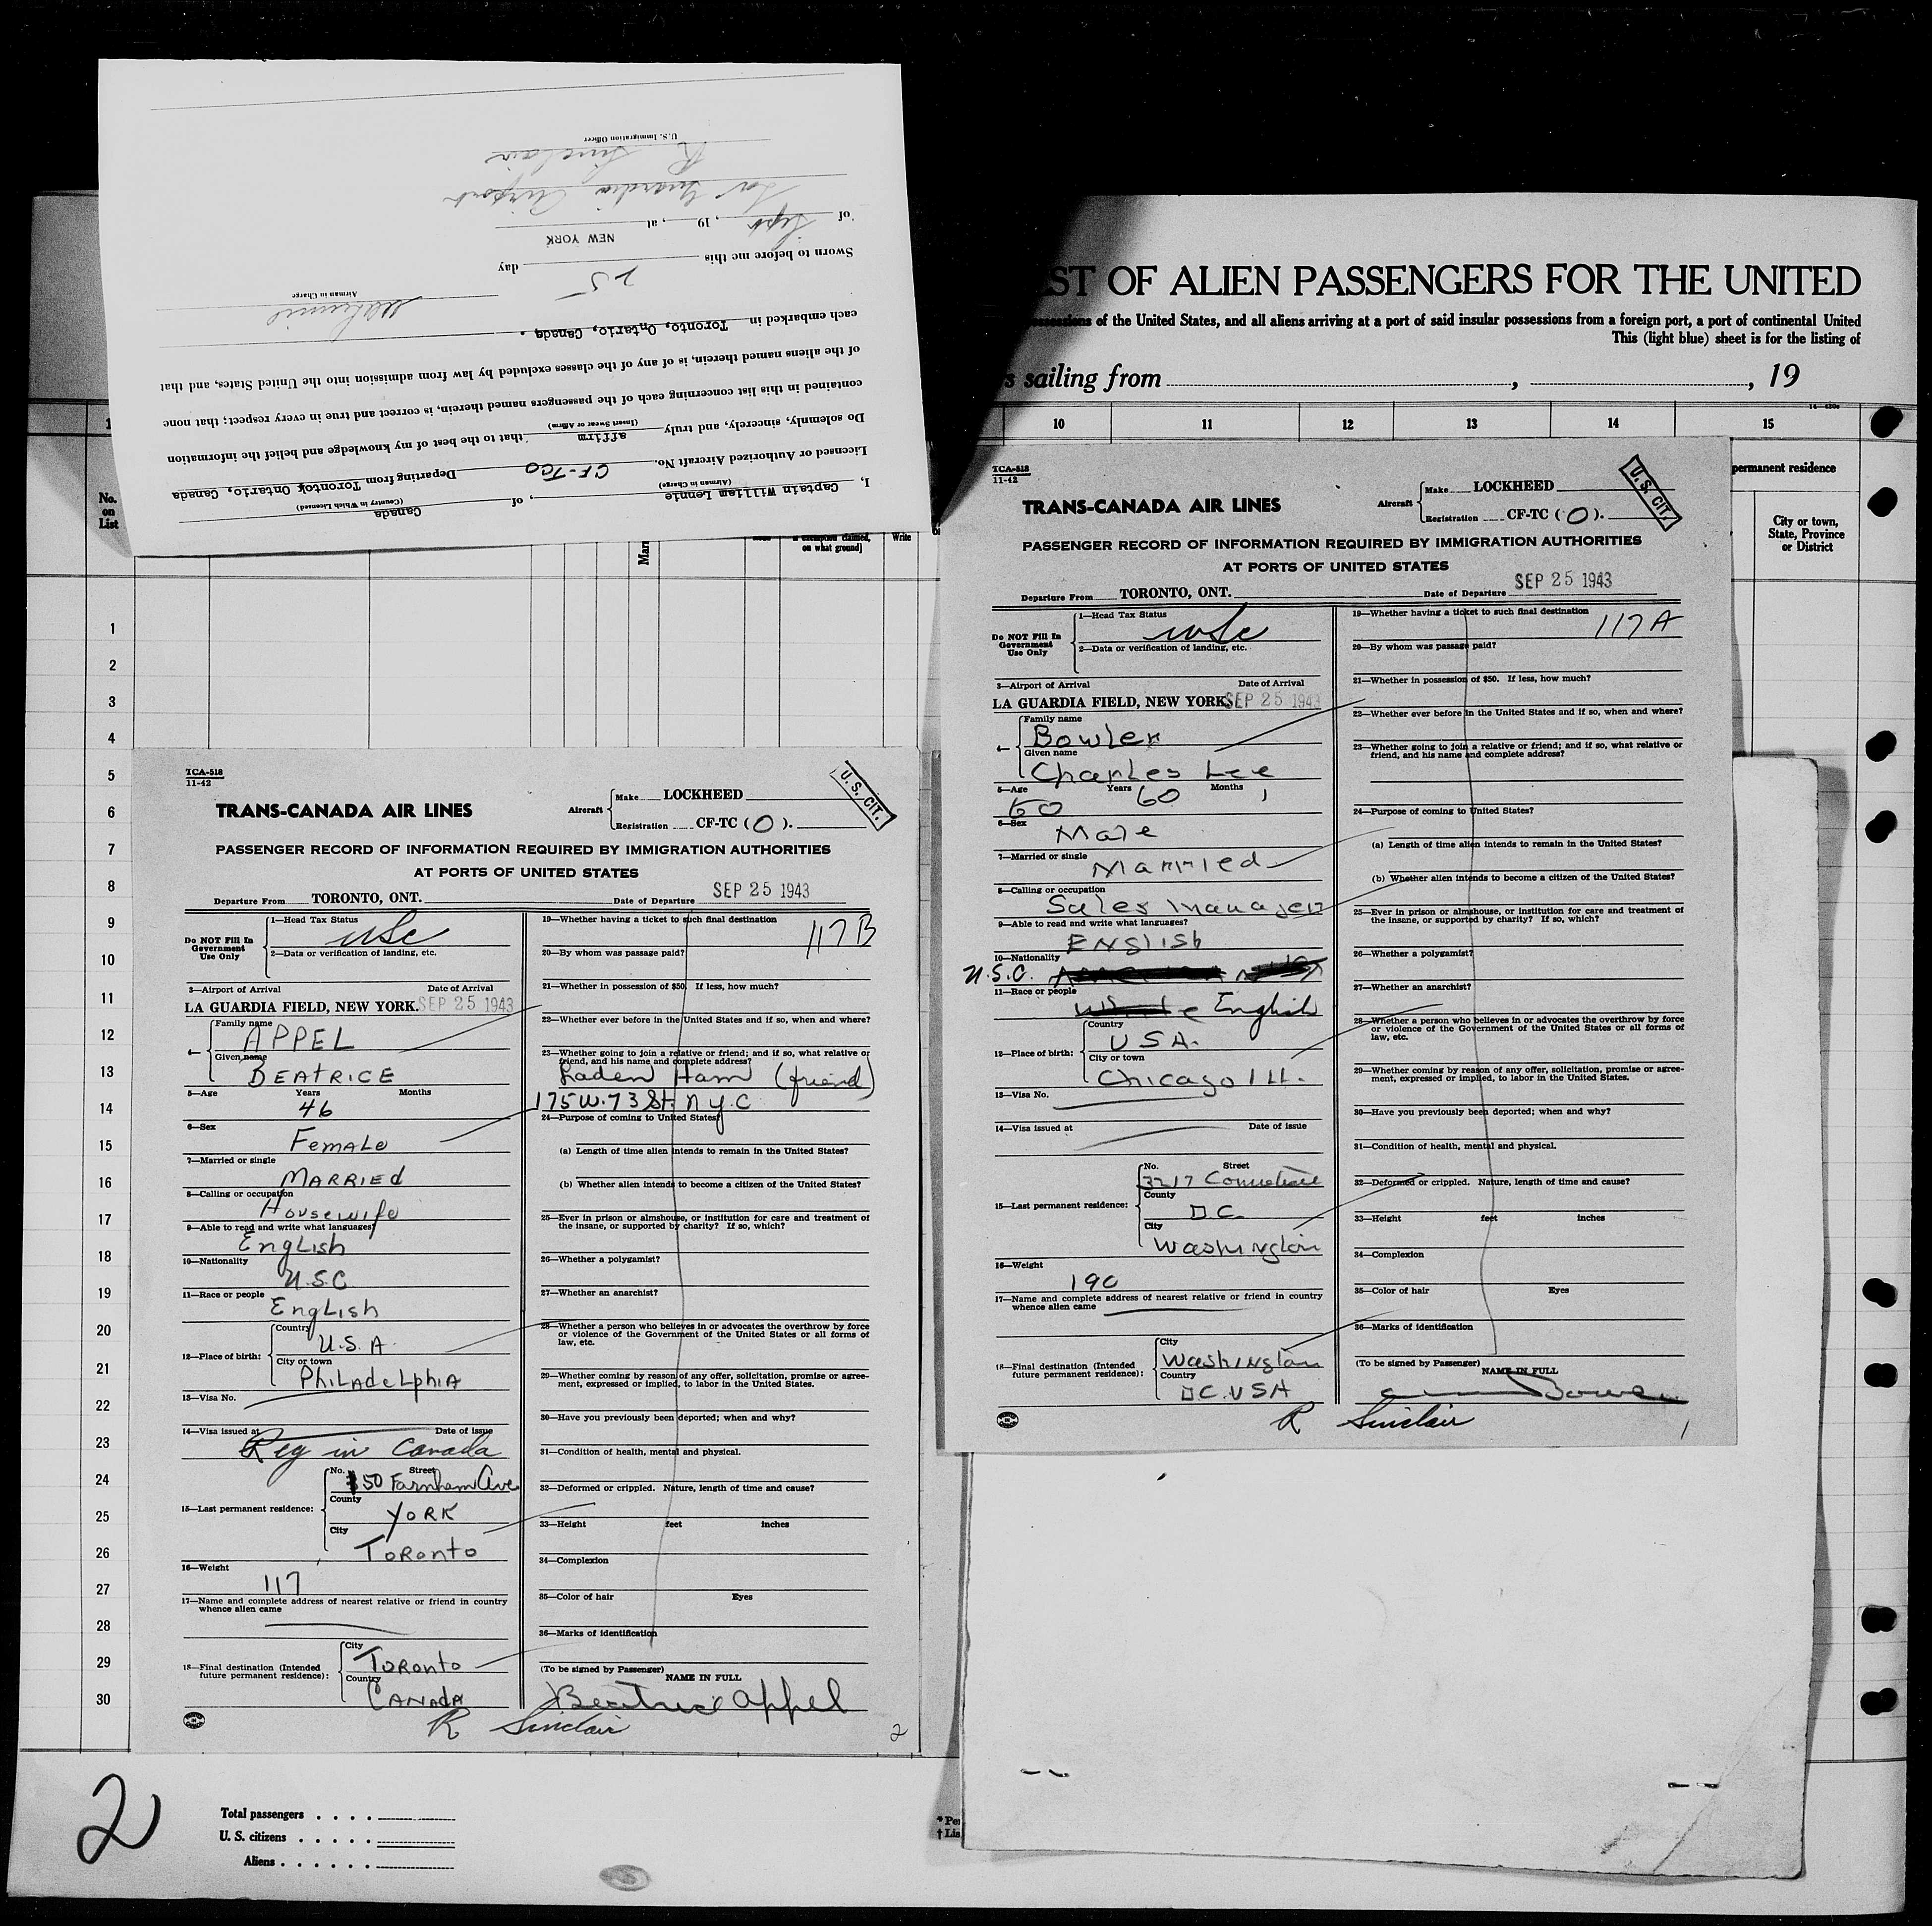 U.S. Immigration Officer
R Sinclair
La Guardia Airport
of Sept , 19 , at
NEW YORK
Sworn to before me this 25 day
Airman in Charge
each embarked in Toronto, Ontario, Canada.
of the aliens named therein, is of any of the classes excluded by law from admission into the United States, and that
contained in this list concerning each of the passengers named therein, is correct and true in every respect; that none
Do solemnly, sincerely, and truly affirm that to the best of my knowledge and belief the information
(Insert Swear or Affirm)
Licensed or Authorized Aircraft No. CF-TCO Departing from Toronto, Ontario, Canada
(Airman in Charge) (Country in Which Licensed)
I, Captain William Lennie , of Canada
ST OF ALIEN PASSENGERS FOR THE UNITED
possessions of the United States, and all aliens arriving at a port of said insular possessions from a foreign port, a port of continental United
This (light blue) sheet is for the listing of
s sailing from , , 19
10 11 12 13 14 15
permanent residence
City or town,
State, Province
or District
No.
on
List
exemption claimed,
on what ground]
Write
1
2
3
4
5
6
7
8
9
10
11
12
13
14
15
16
17
18
19
20
21
22
23
24
25
26
27
28
29
30
TCA-518
11-42
TRANS-CANADA AIR LINES
Aircraft
Make LOCKHEED
Registration CF-TC (O).
U.S. CIT.
PASSENGER RECORD OF INFORMATION REQUIRED BY IMMIGRATION AUTHORITIES
AT PORTS OF UNITED STATES
Departure From TORONTO, ONT. Date of Departure SEP 25 1943
Do NOT Fill In
Government
Use Only
1—Head Tax Status
USC
2—Data or verification of landing, etc.
3—Airport of Arrival Date of Arrival
LA GUARDIA FIELD, NEW YORK. SEP 25 1943
4—
Family name
APPEL
Given name
BEATRICE
5—Age Years Months
46
6—Sex
Female
7—Married or single
MARRIEd
8—Calling or occupation
Housewife
9—Able to read and write what languages?
English
10—Nationality
U.S.C.
11—Race or people
English
12—Place of birth:
Country
U.S.A.
City or town
PhiLAdeLphiA
13—Visa No.
14—Visa issued at Date of issue
Reg in Canada
15—Last permanent residence:
No. Street
50 Farnham Ave
County
YORK
City
Toronto
16—Weight
117
17—Name and complete address of nearest relative or friend in country
whence alien came
18—Final destination (Intended
future permanent residence):
City
Toronto
Country
CANAdA
R Sinclair
19—Whether having a ticket to such final destination
117B
20—By whom was passage paid?
21—Whether in possession of $50. If less, how much?
22—Whether ever before in the United States and if so, when and where?
23—Whether going to join a relative or friend; and if so, what relative or
friend, and his name and complete address?
Laden Ham (friend)
175 W. 73 St. N.Y.C
24—Purpose of coming to United States?
(a) Length of time alien intends to remain in the United States?
(b) Whether alien intends to become a citizen of the United States?
25—Ever in prison or almshouse, or institution for care and treatment of
the insane, or supported by charity? If so, which?
26—Whether a polygamist?
27—Whether an anarchist?
28—Whether a person who believes in or advocates the overthrow by force
or violence of the Government of the United States or all forms of
law, etc.
29—Whether coming by reason of any offer, solicitation, promise or agree-
ment, expressed or implied, to labor in the United States.
30—Have you previously been deported; when and why?
31—Condition of health, mental and physical.
32—Deformed or crippled. Nature, length of time and cause?
33—Height feet inches
34—Complexion
35—Color of hair Eyes
36—Marks of identification
(To be signed by Passenger)
NAME IN FULL
Beatrice Appel
2
TCA-518
11-42
TRANS-CANADA AIR LINES
Aircraft
Make LOCKHEED
Registration CF-TC (O).
U.S. CIT.
PASSENGER RECORD OF INFORMATION REQUIRED BY IMMIGRATION AUTHORITIES
AT PORTS OF UNITED STATES
Departure From TORONTO, ONT. Date of Departure SEP 25 1943
Do NOT Fill In
Government
Use Only
1—Head Tax Status
USC
2—Data or verification of landing, etc.
3—Airport of Arrival Date of Arrival
LA GUARDIA FIELD, NEW YORK SEP 25 1943
4—
Family name
Bowler
Given name
Charles Lee
5—Age Years Months
60 60 1
6—Sex
Male
7—Married or single
Married
8—Calling or occupation
Sales Manager
9—Able to read and write what languages?
ENglish
10—Nationality
U.S.C.
11—Race or people
English
12—Place of birth:
Country
USA.
City or town
Chicago Ill.
13—Visa No.
14—Visa issued at Date of issue
15—Last permanent residence:
No. Street
3217
County
D.C.
City
Washington
16—Weight
190
17—Name and complete address of nearest relative or friend in country
whence alien came
18—Final destination (Intended
future permanent residence):
City
Washington
Country
DC. USA
R Sinclair
19—Whether having a ticket to such final destination
117A
20—By whom was passage paid?
21—Whether in possession of $50. If less, how much?
22—Whether ever before in the United States and if so, when and where?
23—Whether going to join a relative or friend; and if so, what relative or
friend, and his name and complete address?
24—Purpose of coming to United States?
(a) Length of time alien intends to remain in the United States?
(b) Whether alien intends to become a citizen of the United States?
25—Ever in prison or almshouse, or institution for care and treatment of
the insane, or supported by charity? If so, which?
26—Whether a polygamist?
27—Whether an anarchist?
28—Whether a person who believes in or advocates the overthrow by force
or violence of the Government of the United States or all forms of
law, etc.
29—Whether coming by reason of any offer, solicitation, promise or agree-
ment, expressed or implied, to labor in the United States.
30—Have you previously been deported; when and why?
31—Condition of health, mental and physical.
32—Deformed or crippled. Nature, length of time and cause?
33—Height feet inches
34—Complexion
35—Color of hair Eyes
36—Marks of identification
(To be signed by Passenger)
NAME IN FULL
1
2
Total passengers . . . .
U. S. citizens . . . . .
Aliens . . . . . .
* Per
† Lis